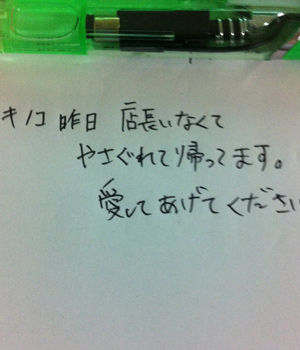 キノコ 昨日 店長いなくて
やさぐれて帰ってます。
愛してあげてください